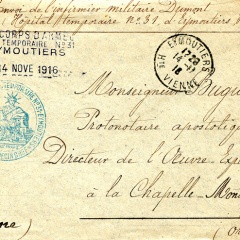 nvoi de l'infirmier militaire Dumont
Hôpital temporaire Nº 31, d'Eymoutiers
CORPS D'ARMÉE
TEMPORAIRE Nº 31
EYMOUTIERS
14 NOVE 1916
EYMOUTIERS
14 - 11
16
Hte VIENNE
Monseigneur Bugu
Protonotaire apostoliq
Directeur de l'Oeuvre Exp
à la Chapelle-Mon
(O
ne)